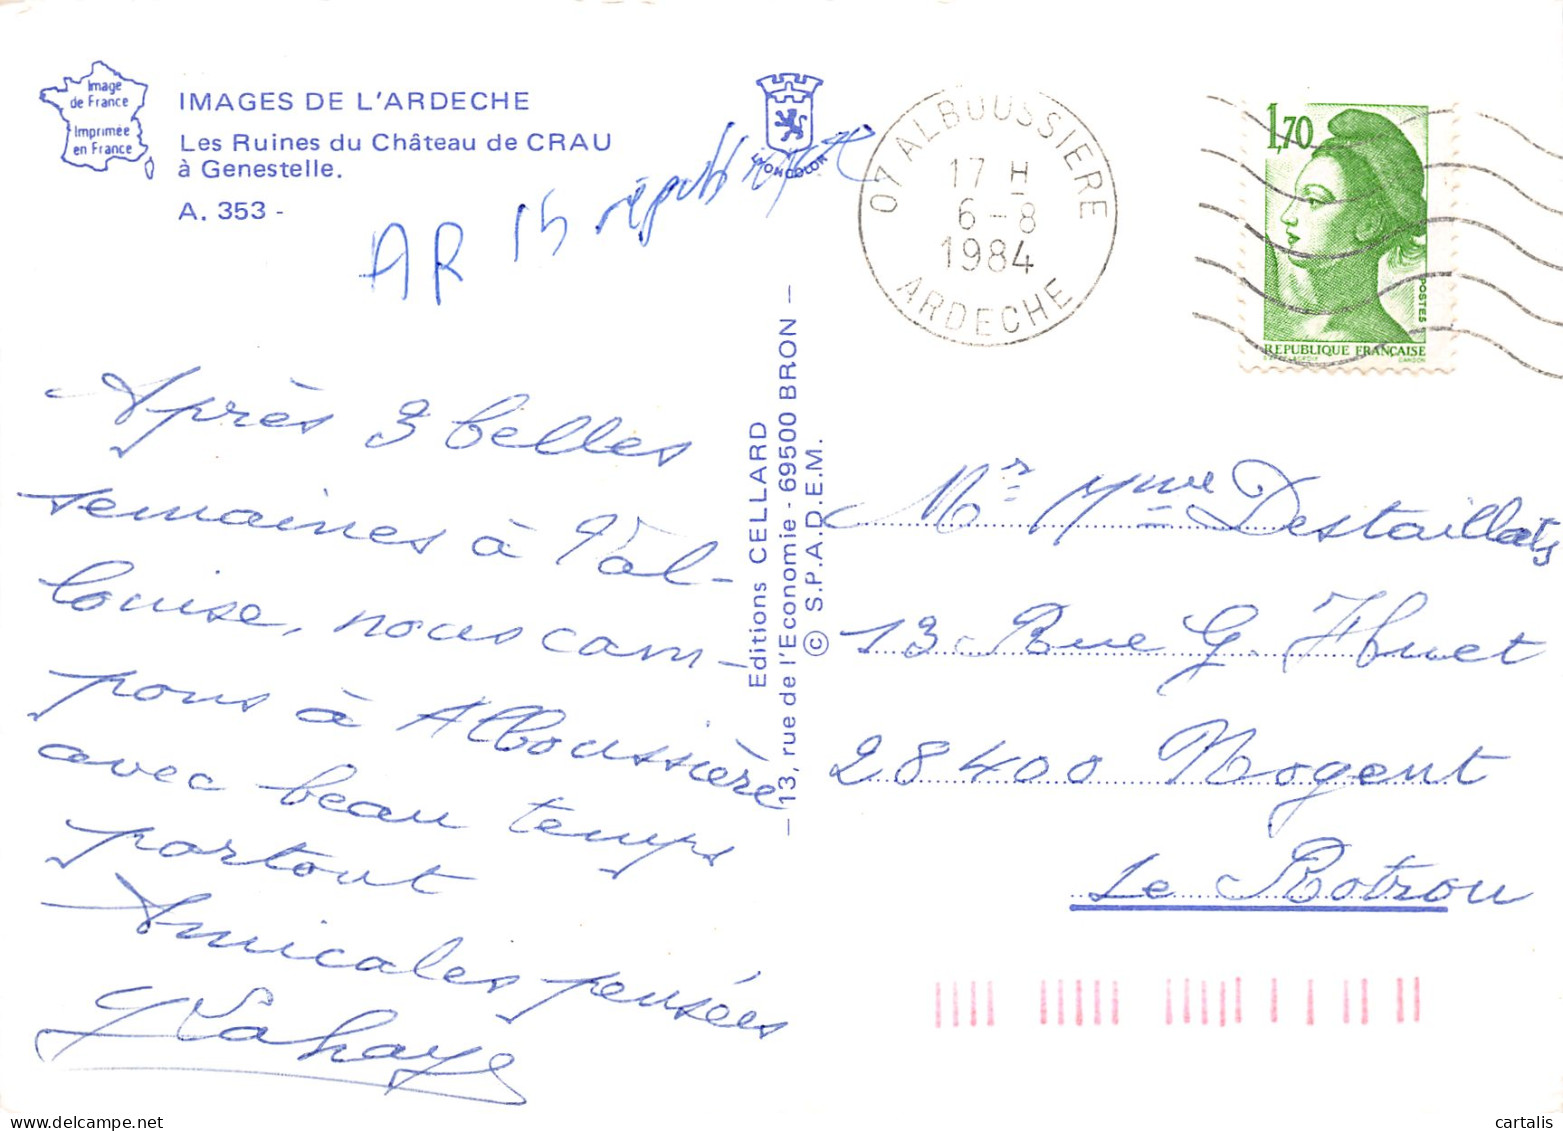 Image
de France
Imprimée
en France
IMAGES DE L'ARDECHE
Les Ruines du Château de CRAU
à Genestelle.
A. 353 -
LYONCOLOR
AR 15
07 ALBOUSSIERE
17 H
6-8
1984
ARDECHE
1,70
POSTES
REPUBLIQUE FRANÇAISE
Après 3 belles
semaines à Val-
louise, nous cam-
pons à Alboussière
avec beau temps
partout
Amicales pensées
Lahaye
Editions CELLARD
– 13, rue de l'Economie - 69500 BRON –
© S.P.A.D.E.M.
Mr Mme Destaillats
13 Rue G. Huet
28400 Nogent
Le Rotrou
cartalis